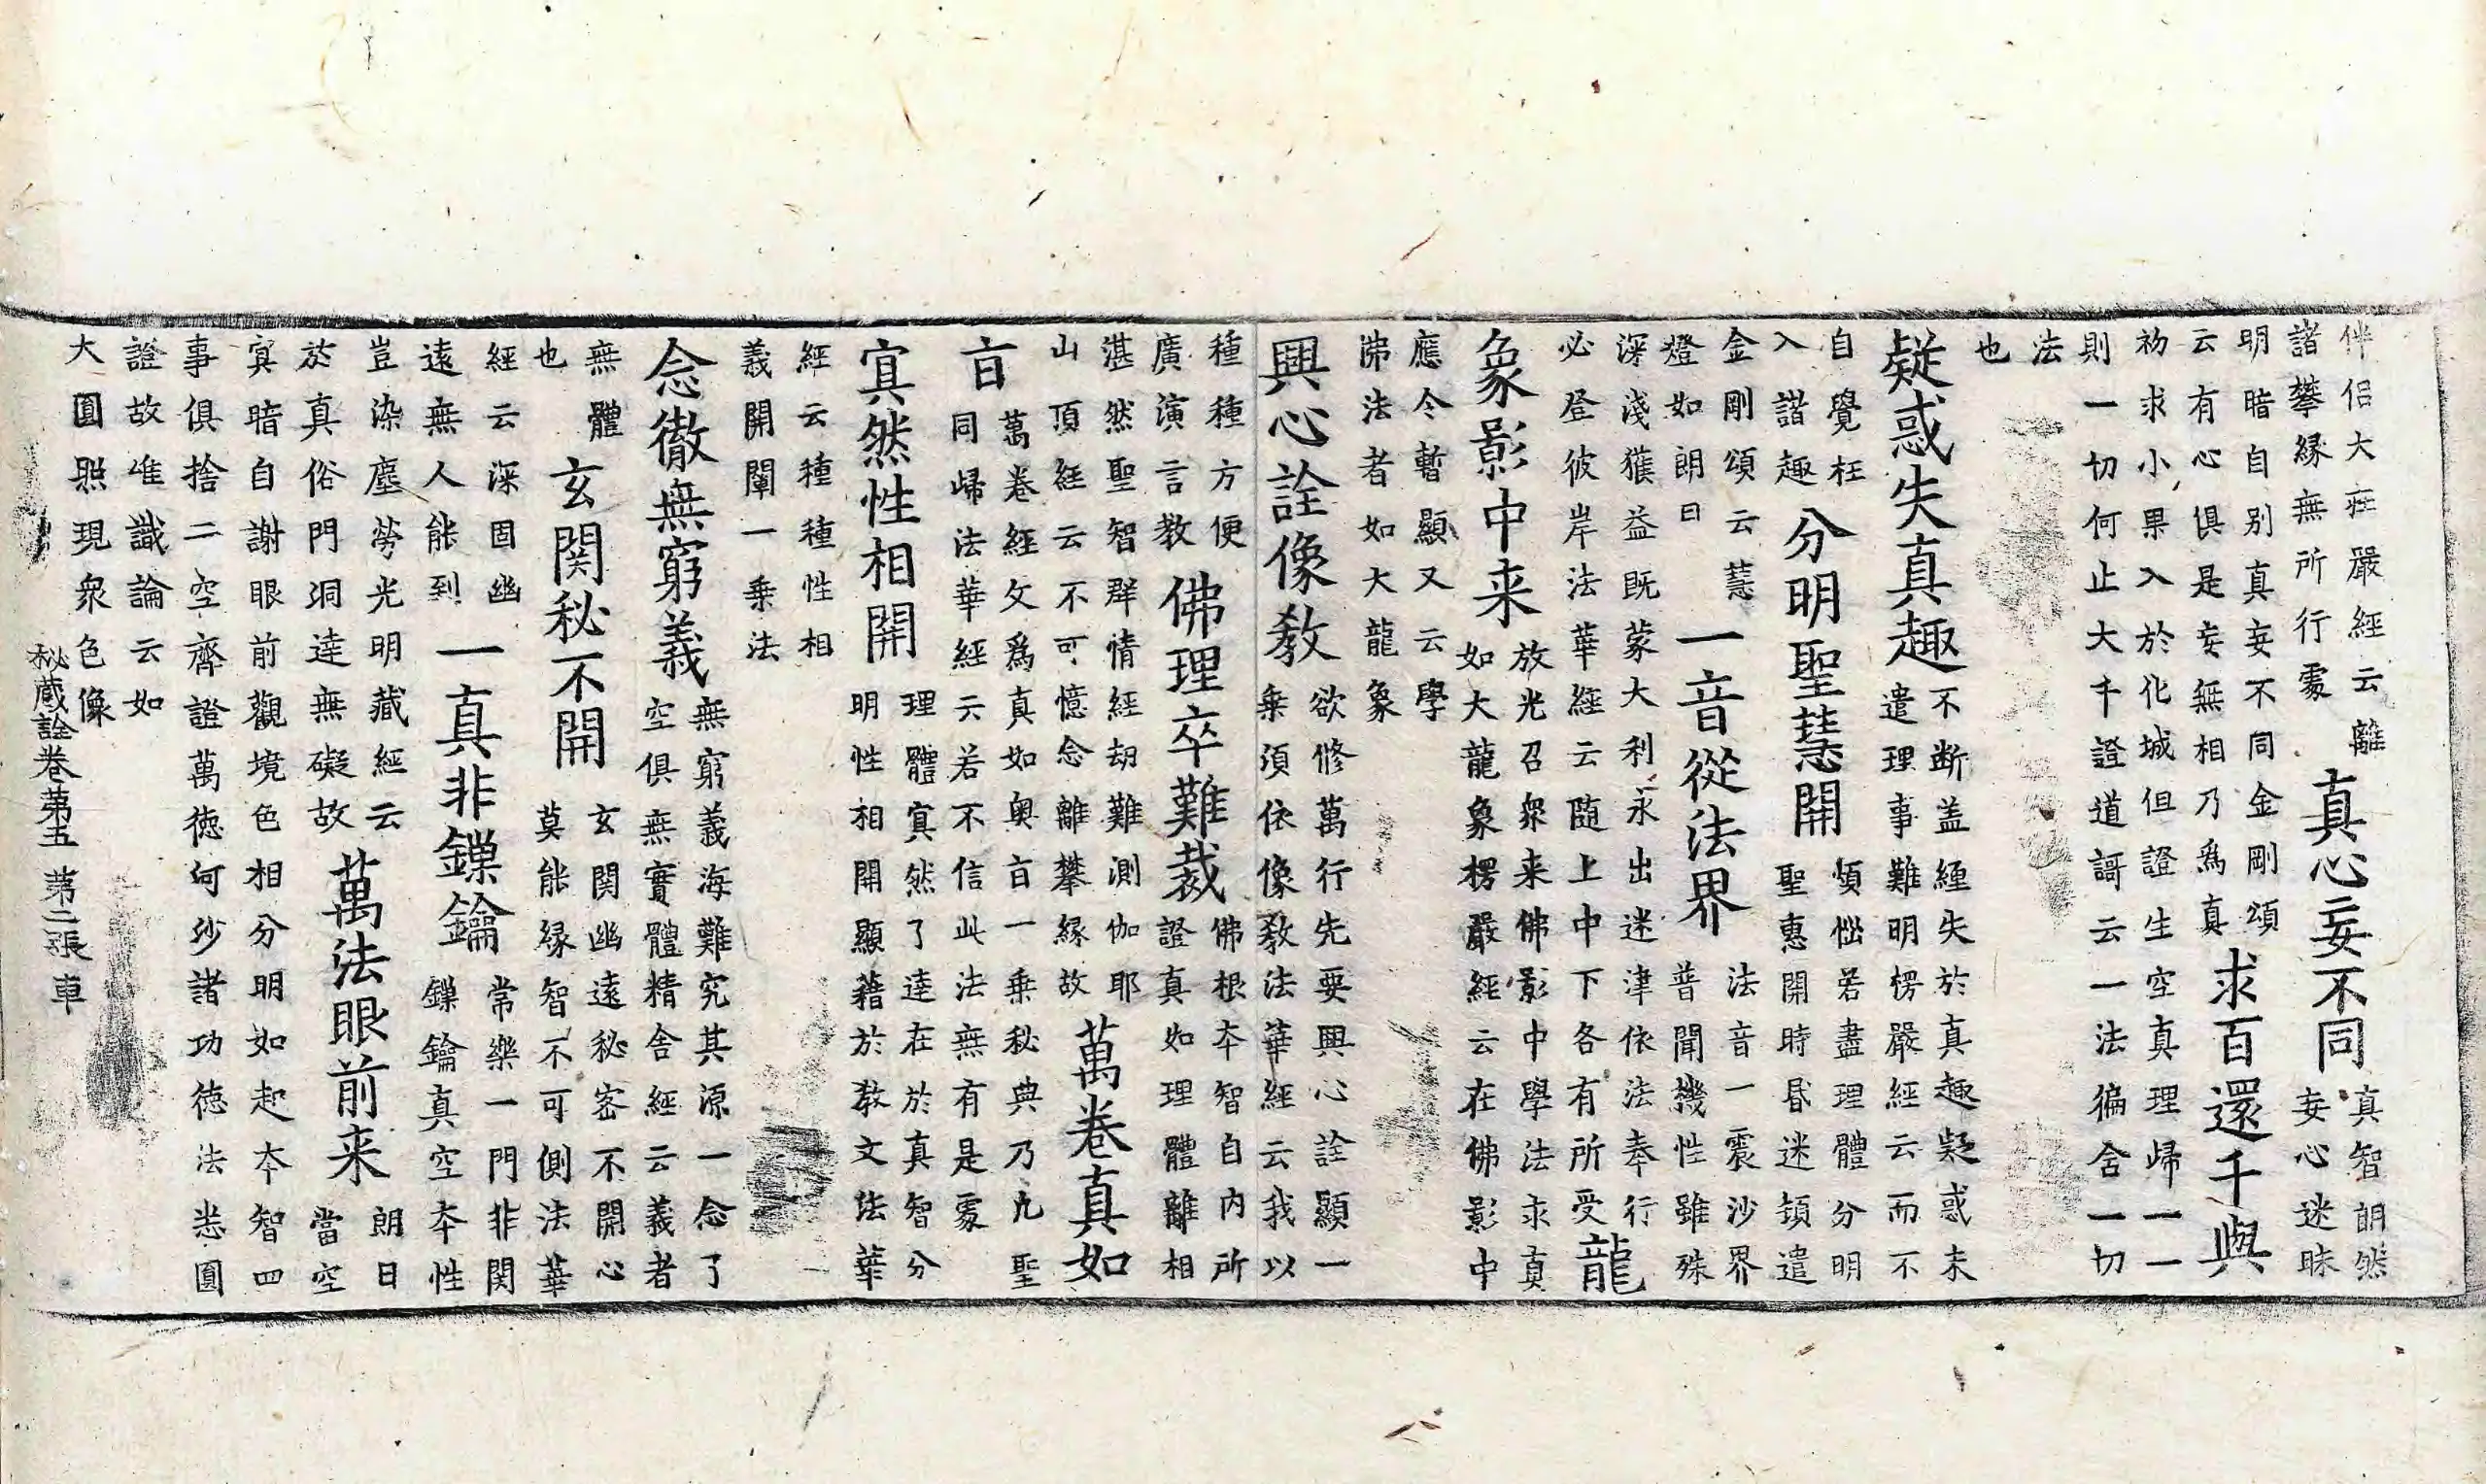 伴侣大莊嚴經云離
諸攀緣無所行處
真心妄不同
真智朗然
妄心迷昧
明暗自别真妄不同金剛頌
云有心俱是妄無相乃爲真
求百還千與
初求小果入於化城但證生空真理歸一一
則一切何止大千證道謌云一法徧含一切
法
也
疑惑失真趣
不断盖纏失於真趣疑惑未
遣理事難明楞嚴經云而不
自覺枉
入諧趣
分明聖慧開
煩惱若盡理體分明
聖惠開時昏迷頓遣
金剛頌云慧
燈如朗日
一音從法界
法音一震沙界
普聞機性雖殊
深淺獲益既蒙大利永出迷津依法奉行
必登彼岸法華經云随上中下各有所受
龍
象影中来
放光召衆来佛影中學法求真
如大龍象楞嚴經云在佛影中
應今暫顯又云學
沸法者如大龍象
興心詮像教
欲修萬行先要興心詮顯一
乗須依像教法華經云我以
種種方便
廣演言教
佛理卒難裁
佛根本智自内所
證真如理體離相
湛然聖智群情經劫難測伽耶
山頂経云不可憶念離攀緣故
萬卷真如
㫖
萬卷經文爲真如奥㫖一乗秘典乃九聖
同歸法華經云若不信此法無有是處
寘然性相開
理體寘然了達在於真智分
明性相開顯藉於教文法華
經云種種性相
義開闡一乗法
念徹無窮義
無窮義海難究其源一念了
空俱無實體精舍經云義者
無體
也
玄関秘不開
玄関幽遠秘密不開心
莫能緣智不可側法華
經云深固幽
遠無人能到
一真非鏁鑰
常樂一門非関
鏁鑰真空本性
豈染塵勞光明藏經云
於真俗門洞達無礙故
萬法眼前来
朗日
當空
寘暗自謝眼前觀境色相分明如起本智四
事俱捨二空齊證萬徳何沙諸功徳法悉圓
證故唯識論云如
大圓照現衆色像
秘蔵詮卷第五 第二張 車